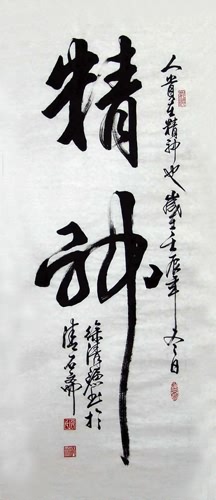 精神
人贵在精神也岁在壬辰年冬日
徐清
於清石斋